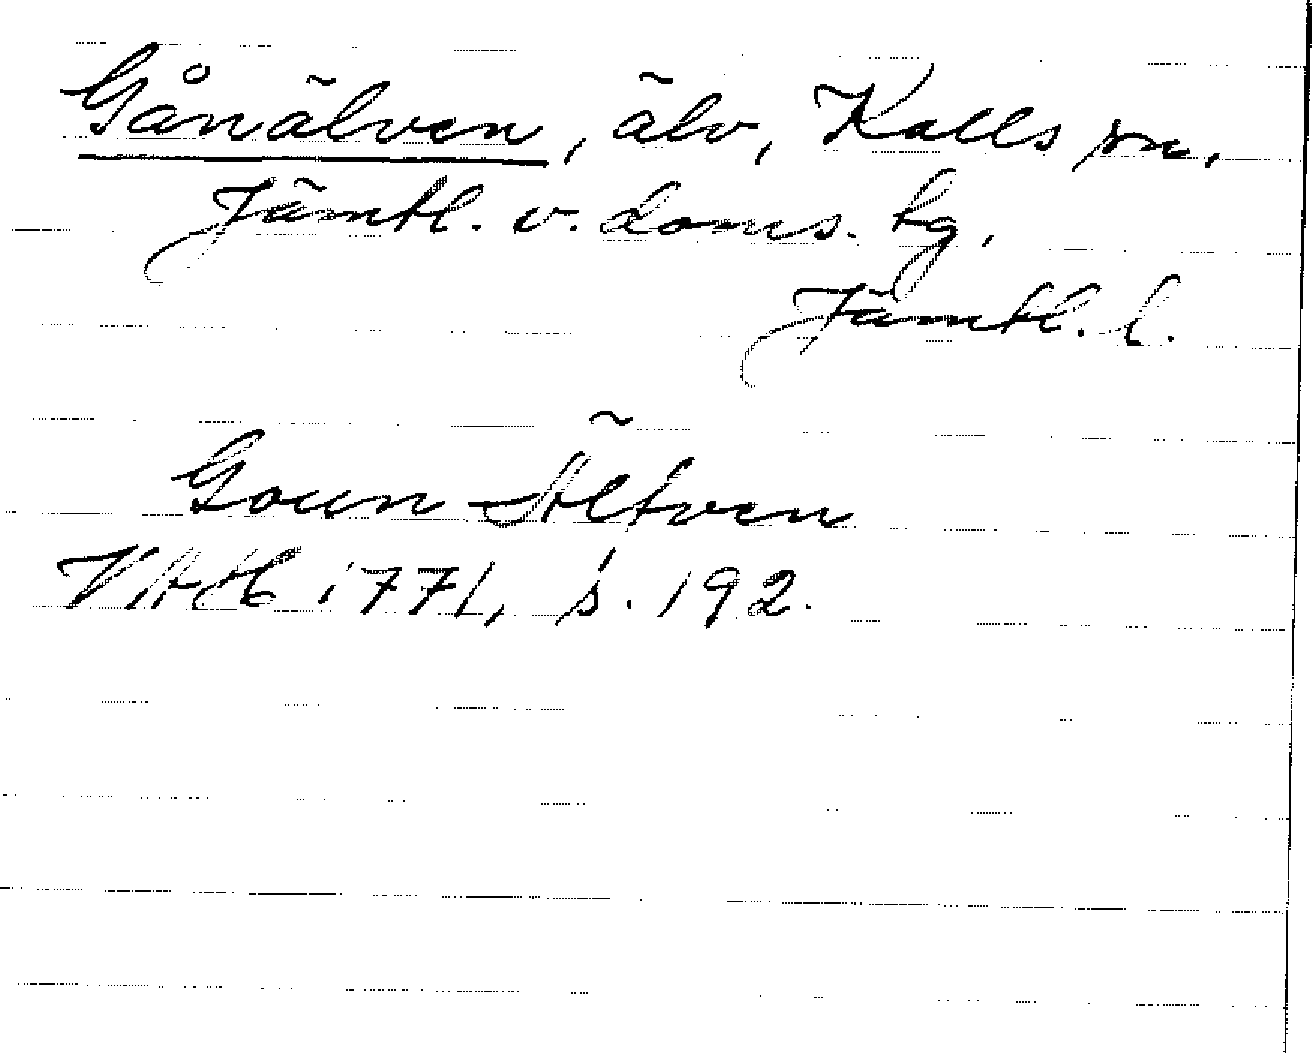 Gånälven, älv, Kalls sn,
Jämtl. v. doms. tg,
Jämtl. l.
Goun Älfven
VAH 1771, s. 192.